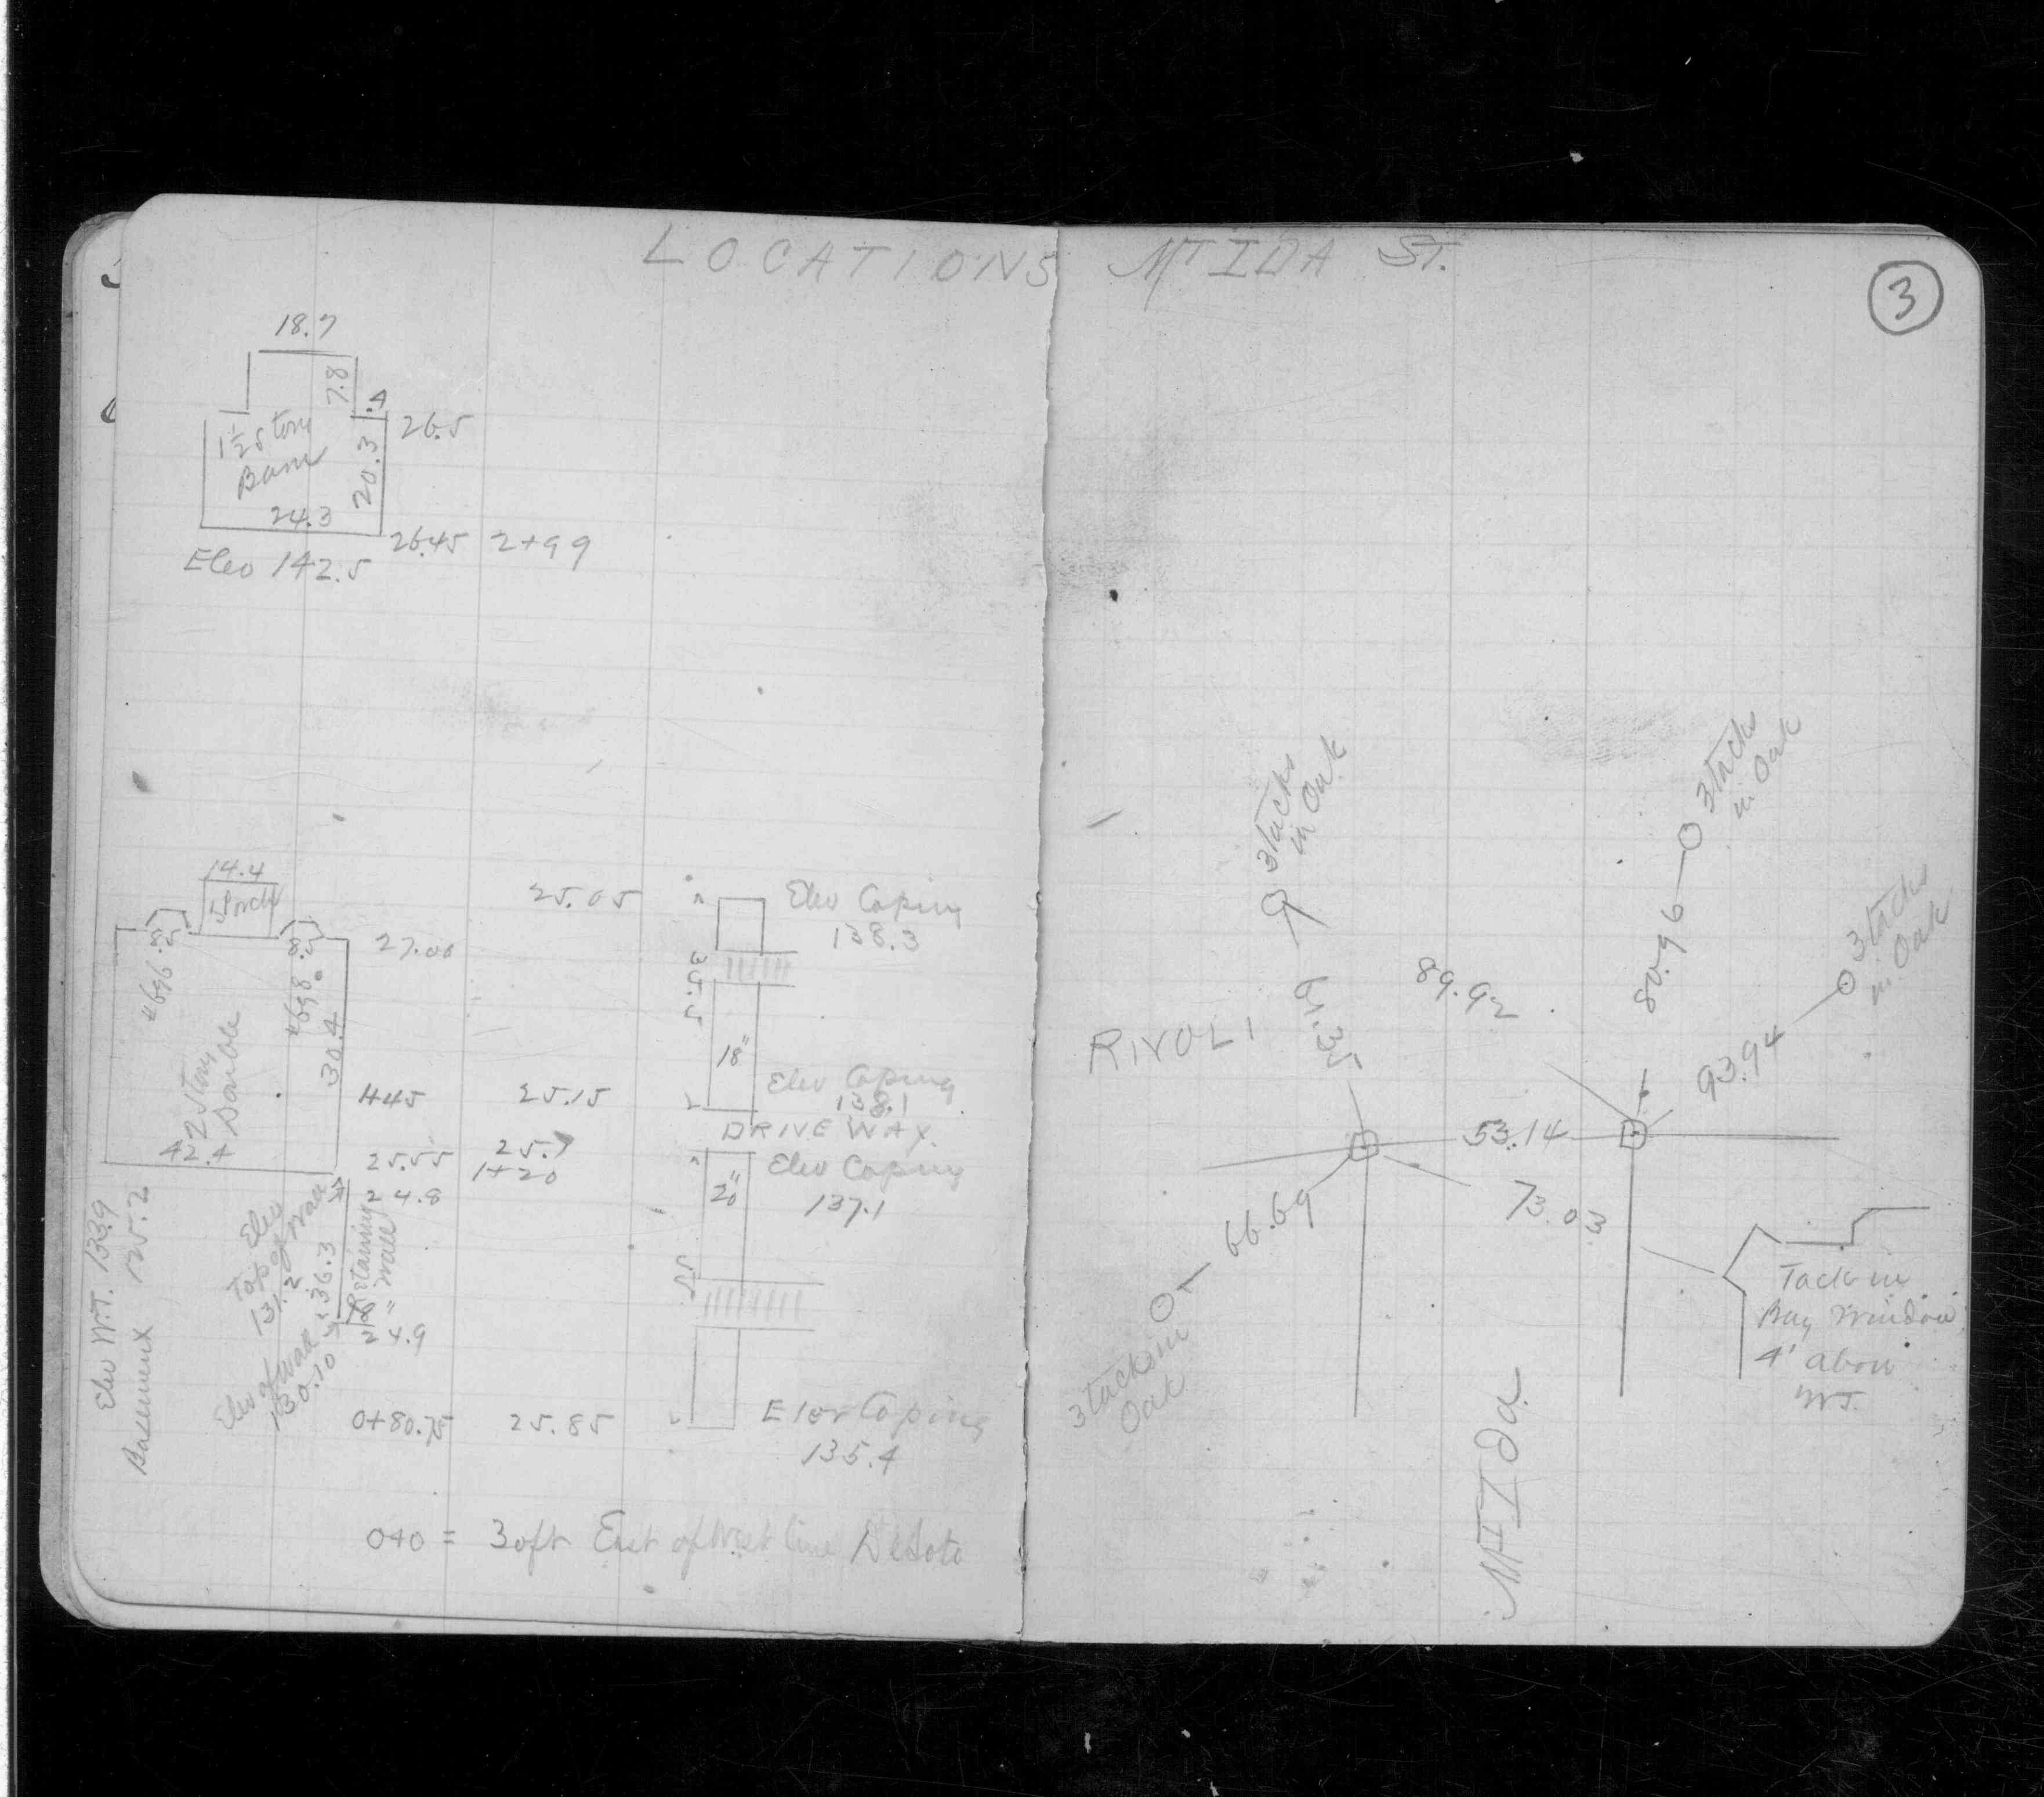 LOCATIONS MT IDA ST.
3
18.7
7.8
.4
26.5
1½ Story
Barn
20.3
24.3
26.45 2+99
Elev 142.5
14.4
Porch
25.05
Elev Coping
138.3
8.5
8.5
27.00
#696
#698
30.4
18"
2 Story
Double
42.4
1+45
25.15
Elev Coping
138.1
DRIVE WAY.
25.55
25.7
1+20
Elev Coping
137.1
20"
24.8
Retaining
Wall
36.3
Top of Wall
Elev
131.2
Elev of Wall
130.10
24.9
Elev W.T. 133.9
Basement
0+80.75
25.85
Elev Coping
135.4
0+0 = 30ft East of West line DeSoto
3 tacks
in Oak
3 tacks
in Oak
3 tacks
in Oak
RIVOLI
89.92
80.96
93.94
53.14
73.03
66.69
3 tacks in
Oak
Tack in
Bay Window
4' above
W.T.
MT Ida